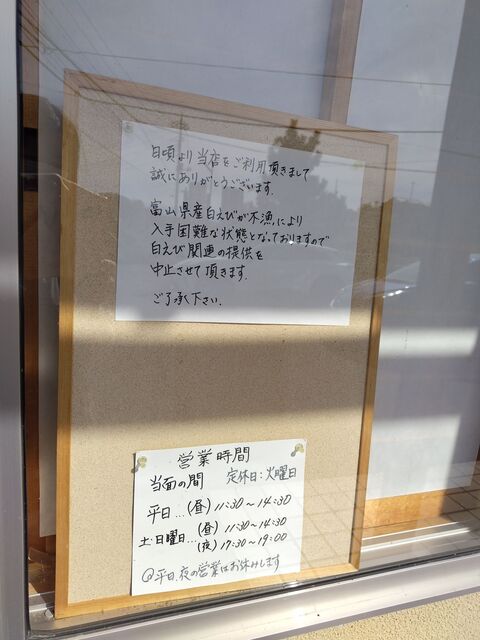 日頃より当店をご利用頂きまして
誠にありがとうございます.
富山県産白えびが不漁により
入手困難な状態となっておりますので
白えび関連の提供を
中止させて頂きます.
ご了承下さい.
営業時間
当面の間 定休日:火曜日
平日…(昼) 11:30~14:30
土・日曜日…(昼) 11:30~14:30
(夜) 17:30~19:00
@平日、夜の営業はお休みします